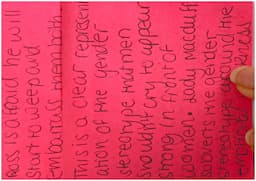 Ross is afraid he will
start to weep and
embarrass them both
This is a clear represent
ation of the gender
stereotype men
shouldn't cry to appear
strong in front of
women. Lady Macduff
subverts the gender
stereotype around the